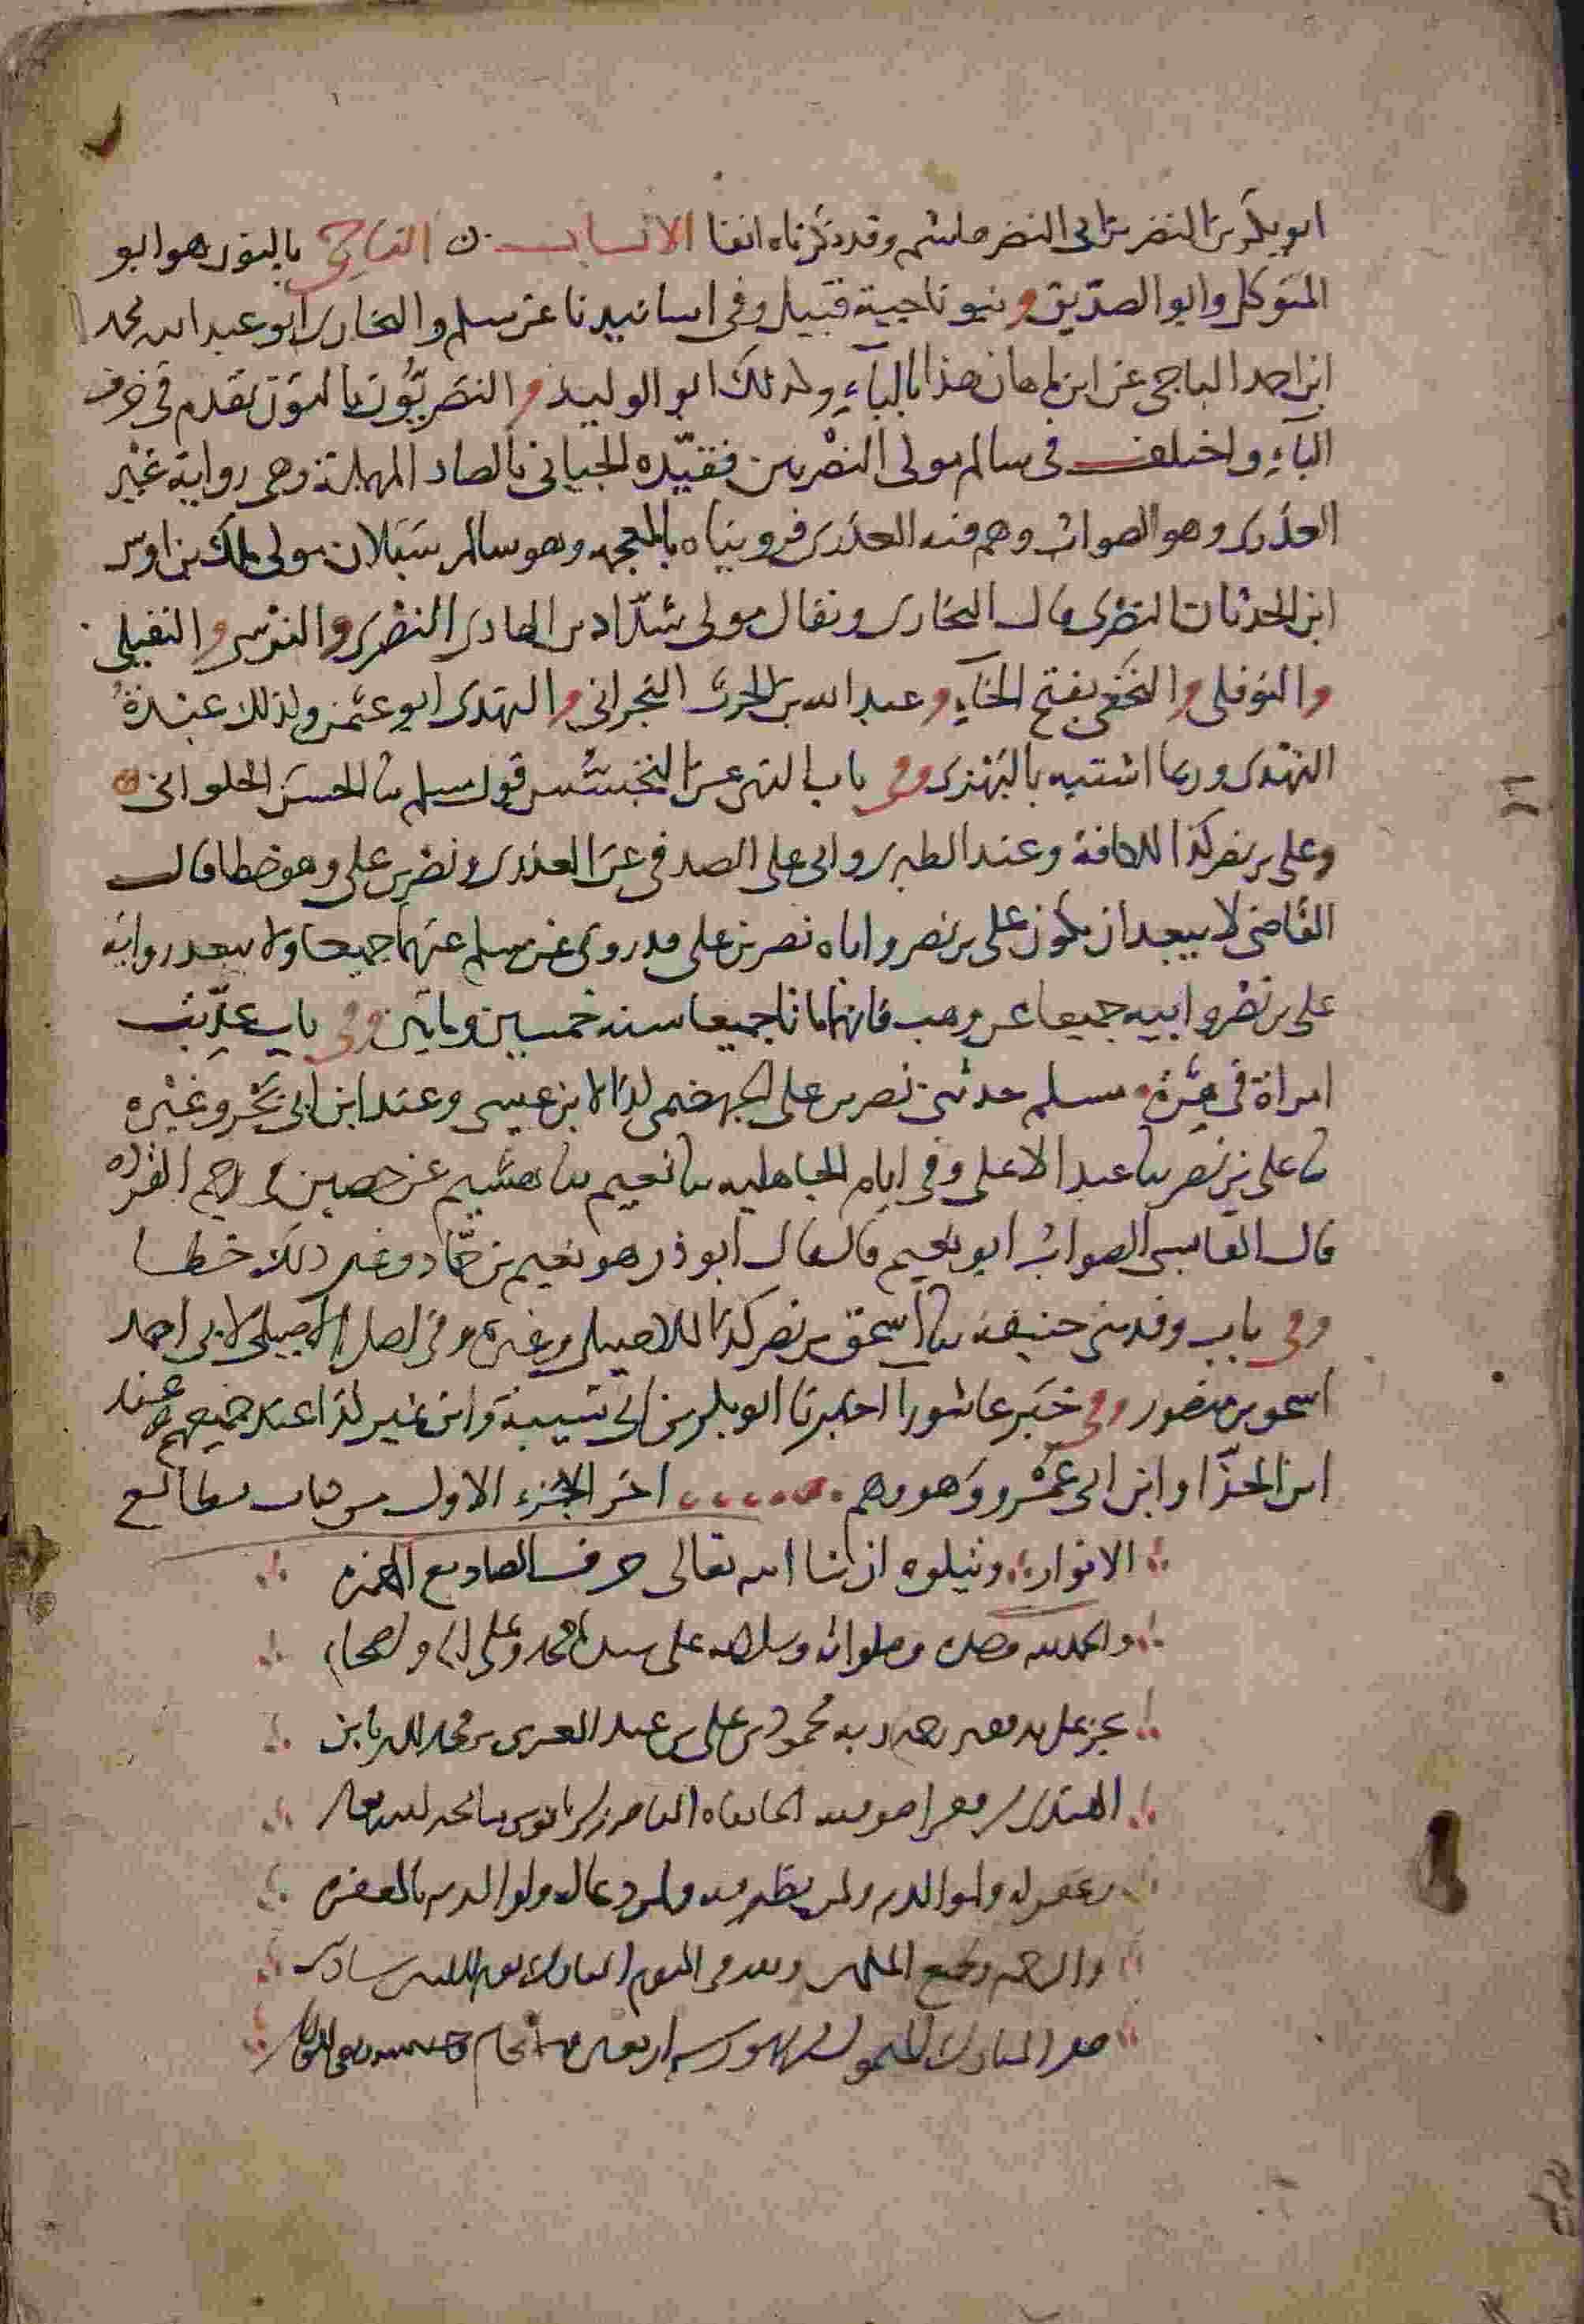 ابو بكر بن النضر بن ابى النضر هاشم وقد ذكرناه انفا الانساب الناجى بالنون هو ابو
المتوكل وابو الصديق وبنو ناجية قبيل وفى اسانيدنا عن مسلم والبخارى ابو عبد الله محمد
ابن احمد الباجى عن ابن ماهان هذا بالباء وكذلك ابو الوليد والنصريون بالنون تقدم فى حرف
الباء واختلف فى سالم مولى النصريين فقيده الجيانى بالصاد المهملة وهى رواية غير
العذرى وهو الصواب وهم فيه العذرى فرويناه بالمعجمه وهو سالم سبلان مولى ملك بن اوس
ابن الحدثان النصرى قال البخارى ويقال مولى شداد بن الهادى النصرى والنرسى والنفيلى
والنوفلى والنخعى بفتح الخاء وعبد الله بن الحرث النجرانى والنهدى ابو عثمن وكذلك عبدة
النهدى وربما اشتبه بالبهزى وفى باب النهى عن التجسس قول مسلم نا الحسن الحلوانى
وعلى بن نصر كذا للكافة وعند الطبرى وابى على الصدفى عن العذرى ونصر بن على وهو خطا قال
القاضى لا يبعد ان يكون على بن نصر واباه نصر بن على قد روى عن مسلم عنهما جميعا ولا يبعد رواية
على بن نصر وابيه جميعا عن وهب فانهما ماتا جميعا سنه خمسين ومايتين وفى باب عذبت
امراة فى هرة مسلم حدثنى نصر بن على الجهضمى كذا لابن عيسى وعند ابن ابى بحر وغيره
نا على بن نصر نا عبد الاعلى وفى ايام الجاهليه نا نعيم نا هشيم عن حصين فى رجم القردة
قال القابسى الصواب ابو نعيم قال قال ابو ذر هو نعيم بن حماد وغير ذلك خطا
وفى باب وفد بنى حنيفه نا اسحق بن نصر كذا للاصيلى وغيره وفى اصل الاصيلى لابى احمد
اسحق بن منصور وفى خبر عاشورا اخبرنا ابو بكر بن ابى شيبة وابن نمير كذا عند جميعهم وعند
ابن الحذا وابن ابى عمرو وهو وهم اخر الجزء الاول من كتاب مطالع
الانوار ويتلوه ان شا الله تعالى حرف الصاد مع الهمزة
والحمد لله وصلواته وسلامه على سيدنا محمد وعلى اله وصحابه
محمود بن على بن عبد العزيز بن محمد
الهندى الخانقاه الناصريه
يغفر له ولوالديه ولمن نظر فيه ولمن دعا له ولوالديه بالمغفرة
والرحمة ولجميع المسلمين فى اليوم المبارك يوم سادس
صفر المبارك من شهور سنه اربعين